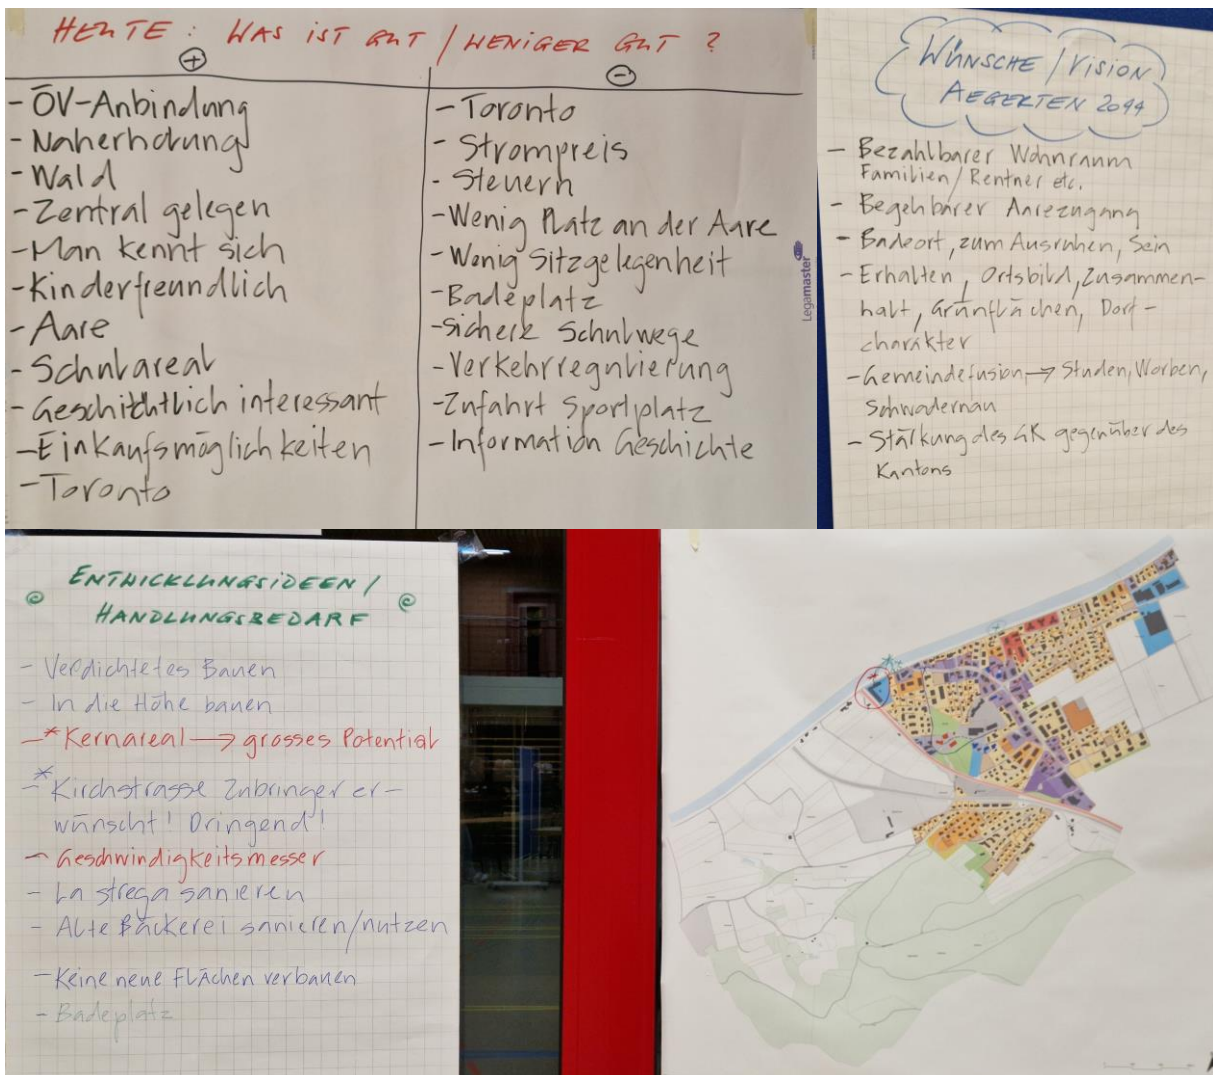 HEUTE: WAS IST GUT / WENIGER GUT ?
+
- ÖV-Anbindung
- Naherholung
- Wald
- Zentral gelegen
- Man kennt sich
- Kinderfreundlich
- Aare
- Schulareal
- Geschichtlich interessant
- Einkaufsmöglichkeiten
- Toronto
-
- Toronto
- Strompreis
- Steuern
- Wenig Platz an der Aare
- Wenig Sitzgelegenheit
- Badeplatz
- Sichere Schulwege
- Verkehrregulierung
- Zufahrt Sportplatz
- Information Geschichte
Legamaster
WÜNSCHE / VISION
AEGERTEN 2044
- Bezahlbarer Wohnraum
Familien / Rentner etc.
- Begehbarer Aarezugang
- Badeort, zum Ausruhen, Sein
- Erhalten, Ortsbild, Zusammen-
halt, Grünflächen, Dorf-
charakter
- Gemeindefusion → Studen, Worben,
Schwadernau
- Stärkung des GR gegenüber des
Kantons
ENTWICKLUNGSIDEEN /
HANDLUNGSBEDARF
- Verdichtetes Bauen
- In die Höhe bauen
- * Kernareal → grosses Potential
- * Kirchstrasse Zubringer er-
wünscht! Dringend!
- Geschwindigkeitsmesser
- La strega sanieren
- Alte Bäckerei sanieren/nutzen
- Keine neue Flächen verbauen
- Badeplatz